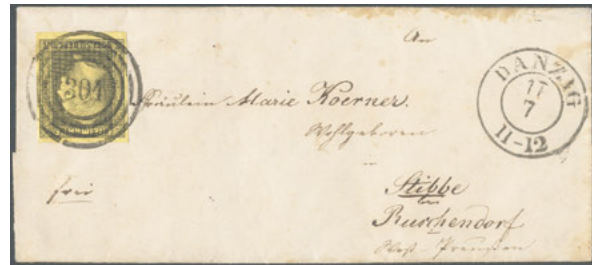 An
301
DANZIG
17
7
11-12
Fräulein Marie Koerner.
Wohlgeboren
in
frei
Stibbe
bei
Ruschendorf
West-Preussen